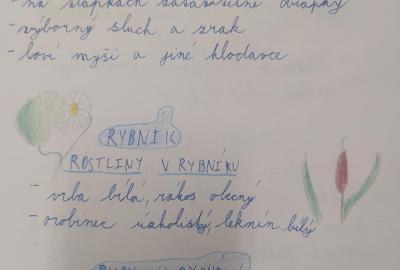 - na tlapkách zatažitelné drápky
- výborný sluch a zrak
- loví myši a jiné hlodavce
RYBNÍK
ROSTLINY V RYBNÍKU
- vrba bílá, rákos obecný
- orobinec úzkolistý, leknín bílý